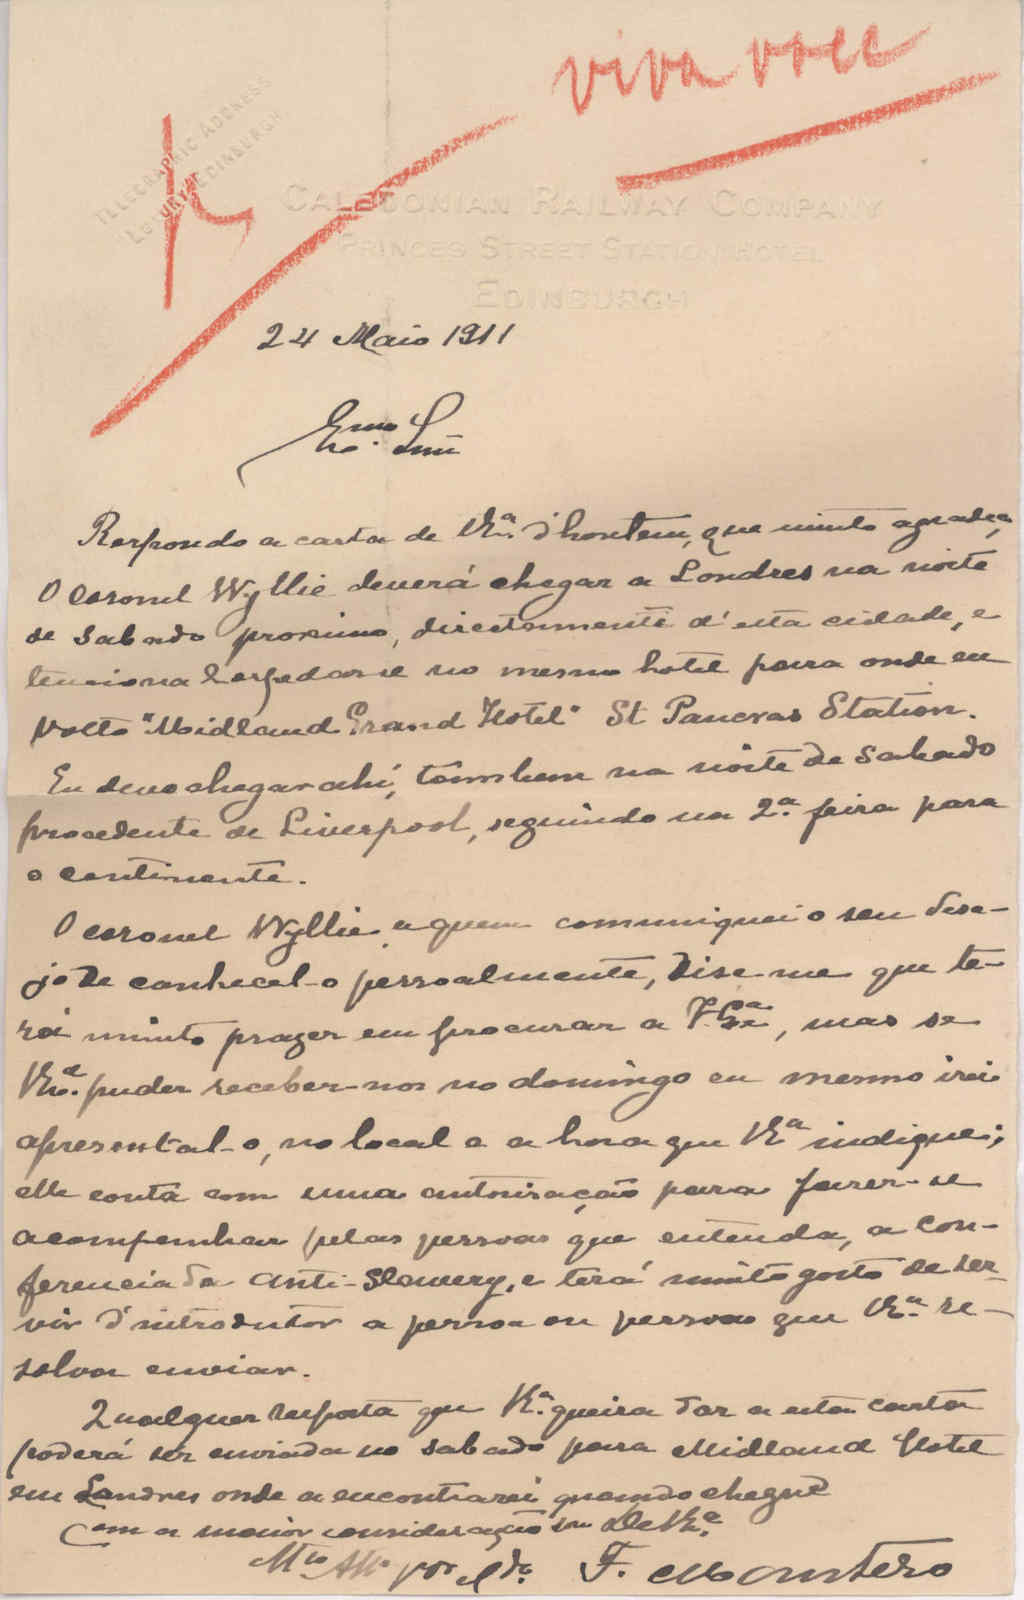 viva voce
TELEGRAPHIC ADDRESS
"LUXURY" EDINBURGH
CALEDONIAN RAILWAY COMPANY
PRINCES STREET STATION HOTEL
EDINBURGH
24 Maio 1911
Exmo. Snr
Respondo a carta de V.Exª. d'hontem, que muito agradeço,
O coronel Wyllie deverá chegar a Londres na noite
de sabado proximo, directamente d'esta cidade, e
tenciona hospedar-se no mesmo hotel para onde eu
volto "Midland Grand Hotel" St Pancras Station.
Eu devo chegar ahi, tambem na noite de sabado
procedente de Liverpool, seguindo na 2.ª feira para
o continente.
O coronel Wyllie a quem communiquei o seu dese-
jo de conhecel-o pessoalmente, disse-me que te-
rá muito prazer em procurar a V. Exª, mas se
V.Exª. puder receber-nos no domingo eu mesmo irei
apresental-o, no local e a hora que V.Exª indique;
elle conta com uma autorisação para fazer-se
acompanhar pelas pessoas que entenda, a con-
ferencia da Anti-Slavery, e terá muito gosto de ser-
vir d'introdutor a pessoa ou pessoas que V.Exª. re-
solva enviar.
Qualquer resposta que V.Exª. queira dar a esta carta
poderá ser enviada no sabado para Midland Hotel
em Londres onde a encontrarei quando chegue
Com a maior consideração sou De V.Exª.
Mto Atto F. Mantero